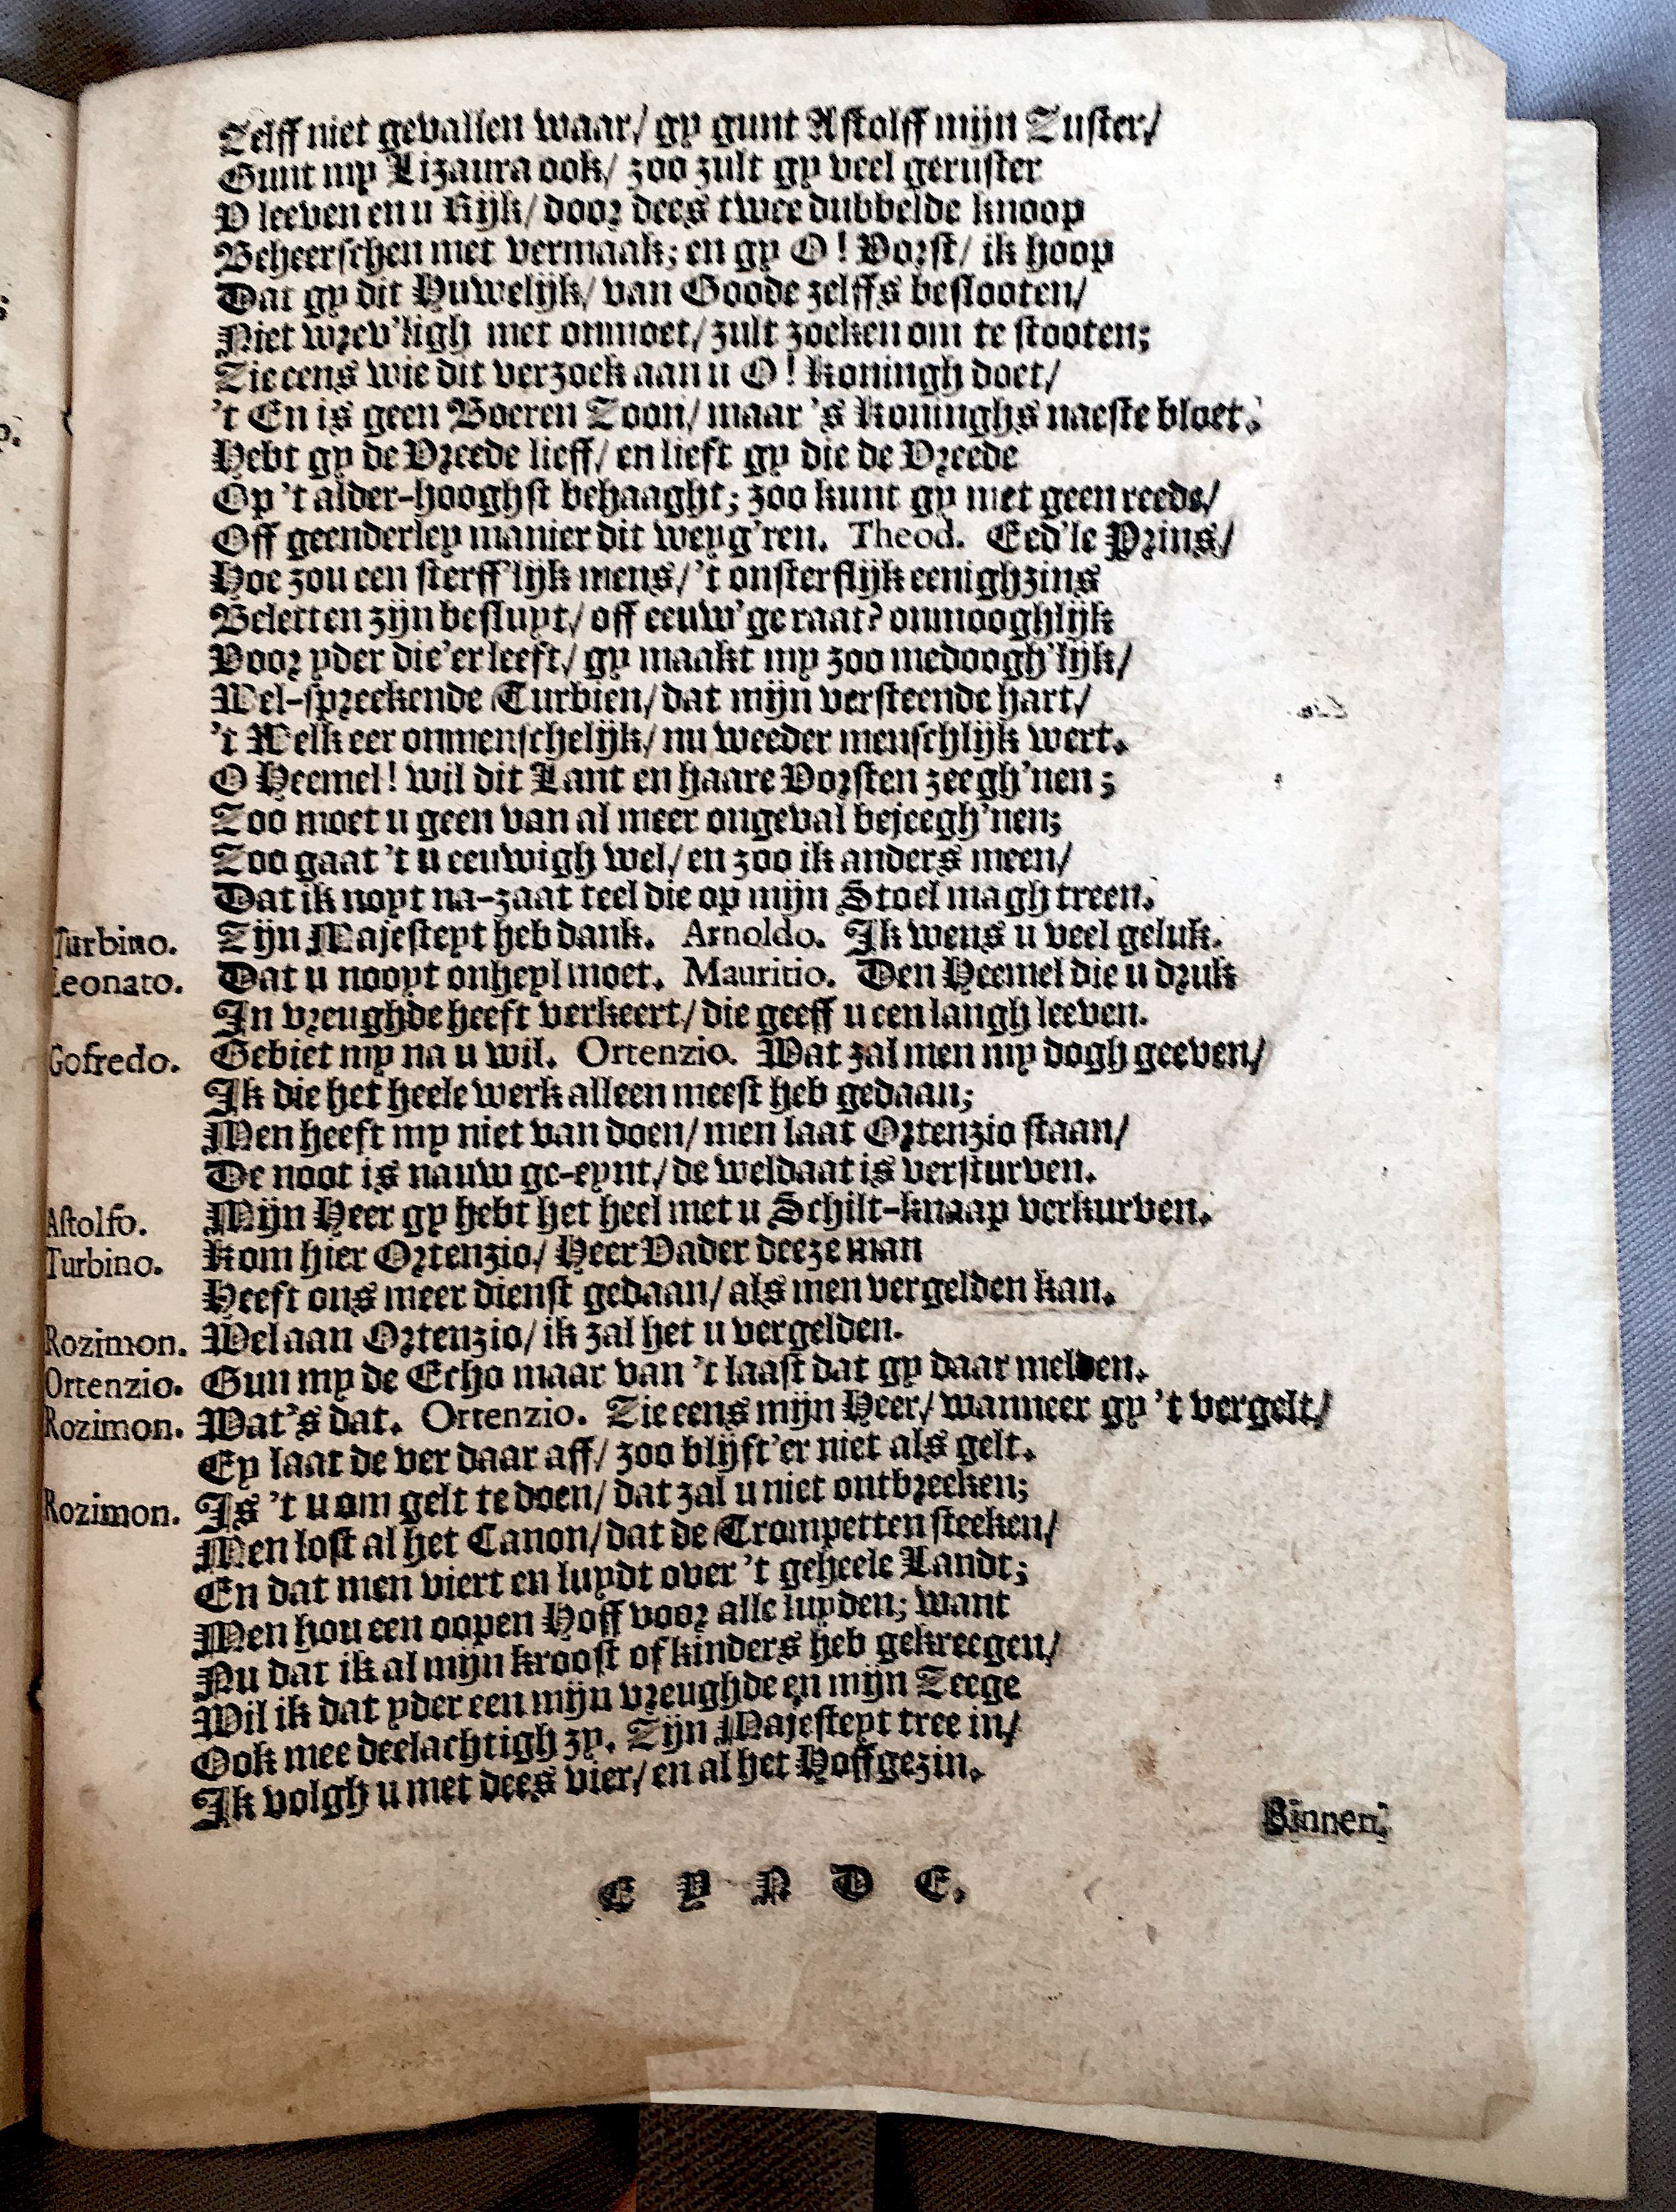 Zelff niet gevallen waar/ gy gunt Astolff mijn Zuster/
Gunt my Lizaura ook/ zoo zult gy veel geruster
V leeven en u Rijk/ door dees twee dubbelde knoop
Beheerschen met vermaak; en gy O! Vorst/ ik hoop
Dat gy dit Huwelijk/ van Goode zelffs beslooten/
Niet wrev'ligh met onmoet/ zult zoeken om te stooten;
Zie eens wie dit verzoek aan u O! Koningh doet/
't En is geen Boeren Zoon/ maar 's Koninghs naeste bloet.
Hebt gy de Vreede lieff/ en lieft gy die de Vreede
Op 't alder-hooghst behaaght; zoo kunt gy met geen reede/
Off geenderley manier dit weyg'ren. Theod. Eed'le Prins/
Hoe zou een sterff'lijk mens/ 't onsterflijk eenighzins
Beletten zijn besluyt/ off eeuw'ge raat? onmooghlijk
Voor yder die'er leeft/ gy maakt my zoo medoogh'lijk/
Wel-spreekende Turbien/ dat mijn versteende hart/
't Welk eer onmenschelijk/ nu weeder menschlijk wert.
O Heemel! wil dit Lant en haare Vorsten zeegh'nen;
Zoo moet u geen van al meer ongeval bejeegh'nen;
Zoo gaat 't u eeuwigh wel/ en zoo ik anders meen/
Dat ik noyt na-zaat teel die op mijn Stoel magh treen.
Turbino. Zijn Majesteyt heb dank. Arnoldo. Ik wens u veel geluk.
Leonato. Dat u nooyt onheyl moet. Mauritio. Den Heemel die u druk
In vreughde heeft verkeert/ die geeff u een langh leeven.
Gofredo. Gebiet my na u wil. Ortenzio. Wat zal men my dogh geeven/
Ik die het heele werk alleen meest heb gedaan;
Men heeft my niet van doen/ men laat Ortenzio staan/
De noot is nauw ge-eynt/ de weldaat is versturven.
Astolfo. Mijn Heer gy hebt het heel met u Schilt-knaap verkurven.
Turbino. Kom hier Ortenzio/ Heer Vader deeze man
Heeft ons meer dienst gedaan/ als men vergelden kan.
Rozimon. Wel aan Ortenzio/ ik zal het u vergelden.
Ortenzio. Gun my de Echo maar van 't laast dat gy daar melden.
Rozimon. Wat's dat. Ortenzio. Zie eens mijn Heer/ wanneer gy 't vergelt/
Ey laat de ver daar aff/ zoo blijft'er niet als gelt.
Rozimon. Is 't u om gelt te doen/ dat zal u niet ontbreeken;
Men lost al het Canon/ dat de Trompetten steeken/
En dat men viert en luydt over 't geheele Landt;
Men hou een oopen Hoff voor alle luyden; want
Nu dat ik al mijn kroost of kinders heb gekreegen/
Wil ik dat yder een mijn vreughde en mijn Zeege
Ook mee deelachtigh zy. Zijn Majesteyt tree in/
Ik volgh u met dees vier/ en al het Hoffgezin.
Binnen.
EYNDE.